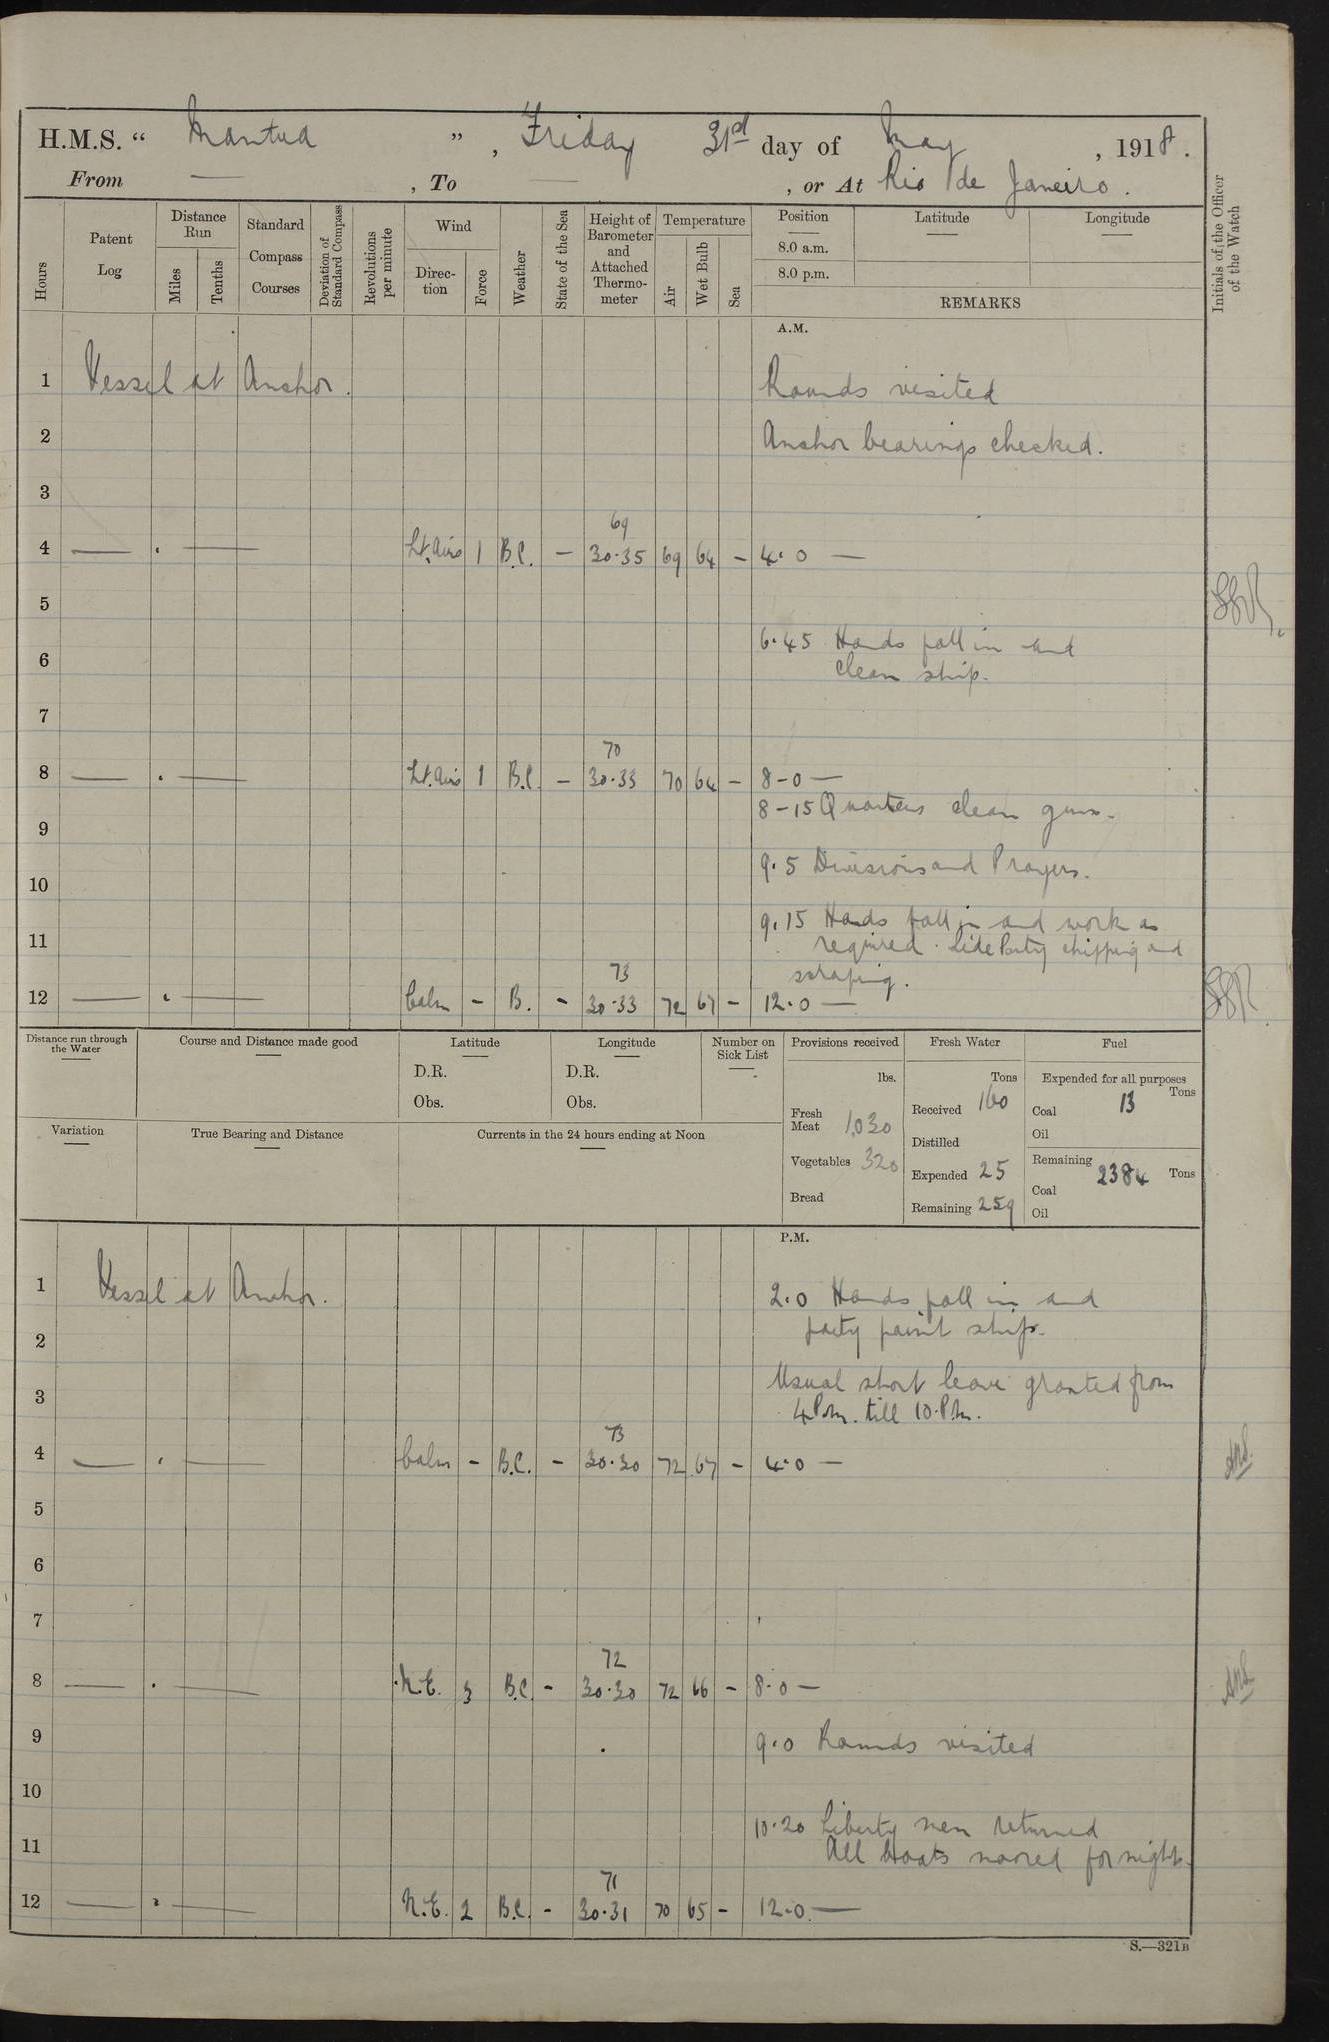 H.M.S. " Mantua ", Friday 31st day of May, 1918.
From — , To — , or At Rio de Janeiro.
Hours
Patent Log
Distance Run
Miles
Tenths
Standard Compass Courses
Deviation of Standard Compass
Revolutions per minute
Wind
Direc-tion
Force
Weather
State of the Sea
Height of Barometer and Attached Thermo-meter
Temperature
Air
Wet Bulb
Sea
Position
Latitude
Longitude
8.0 a.m.
8.0 p.m.
REMARKS
Initials of the Officer of the Watch
A.M.
1 Vessel at Anchor. Rounds visited
2 Anchor bearings checked.
3
69
4 — . — Lt. Airs 1 B.C. — 30.35 69 64 — 4.0 —
5
6.45 Hands fall in and
6 clean ship.
7
70
8 — . — Lt. Airs 1 B.C. — 30.33 70 64 — 8-0 —
8-15 Quarters clean guns.
9
9.5 Divisions and Prayers.
10
9.15 Hands fall in and work as
11 required. Side Party chipping and
73 scraping.
12 — . — Calm - B. - 30.33 72 67 - 12.0 —
Distance run through the Water
Course and Distance made good
Latitude
D.R.
Obs.
Longitude
D.R.
Obs.
Number on Sick List
Provisions received
lbs.
Fresh Meat 1,030
Vegetables 320
Bread
Fresh Water
Tons
Received 160
Distilled
Expended 25
Remaining 259
Fuel
Expended for all purposes
Tons
Coal 13
Oil
Remaining
Coal 2384 Tons
Oil
Variation
True Bearing and Distance
Currents in the 24 hours ending at Noon
P.M.
1 Vessel at Anchor. 2.0 Hands fall in and
2 party paint ship.
Usual short leave granted from
3 4 P.m. till 10.P.m.
73
4 — . — Calm - B.C. - 30.30 72 67 - 4.0 —
5
6
7
72
8 — . — N.E. 3 B.C. - 30.30 72 66 - 8.0 —
9 9.0 Rounds visited
10
10.20 Liberty men returned
11 All boats moored for night.
71
12 — . — N.E. 2 B.C. - 30.31 70 65 - 12.0. —
S.—321B